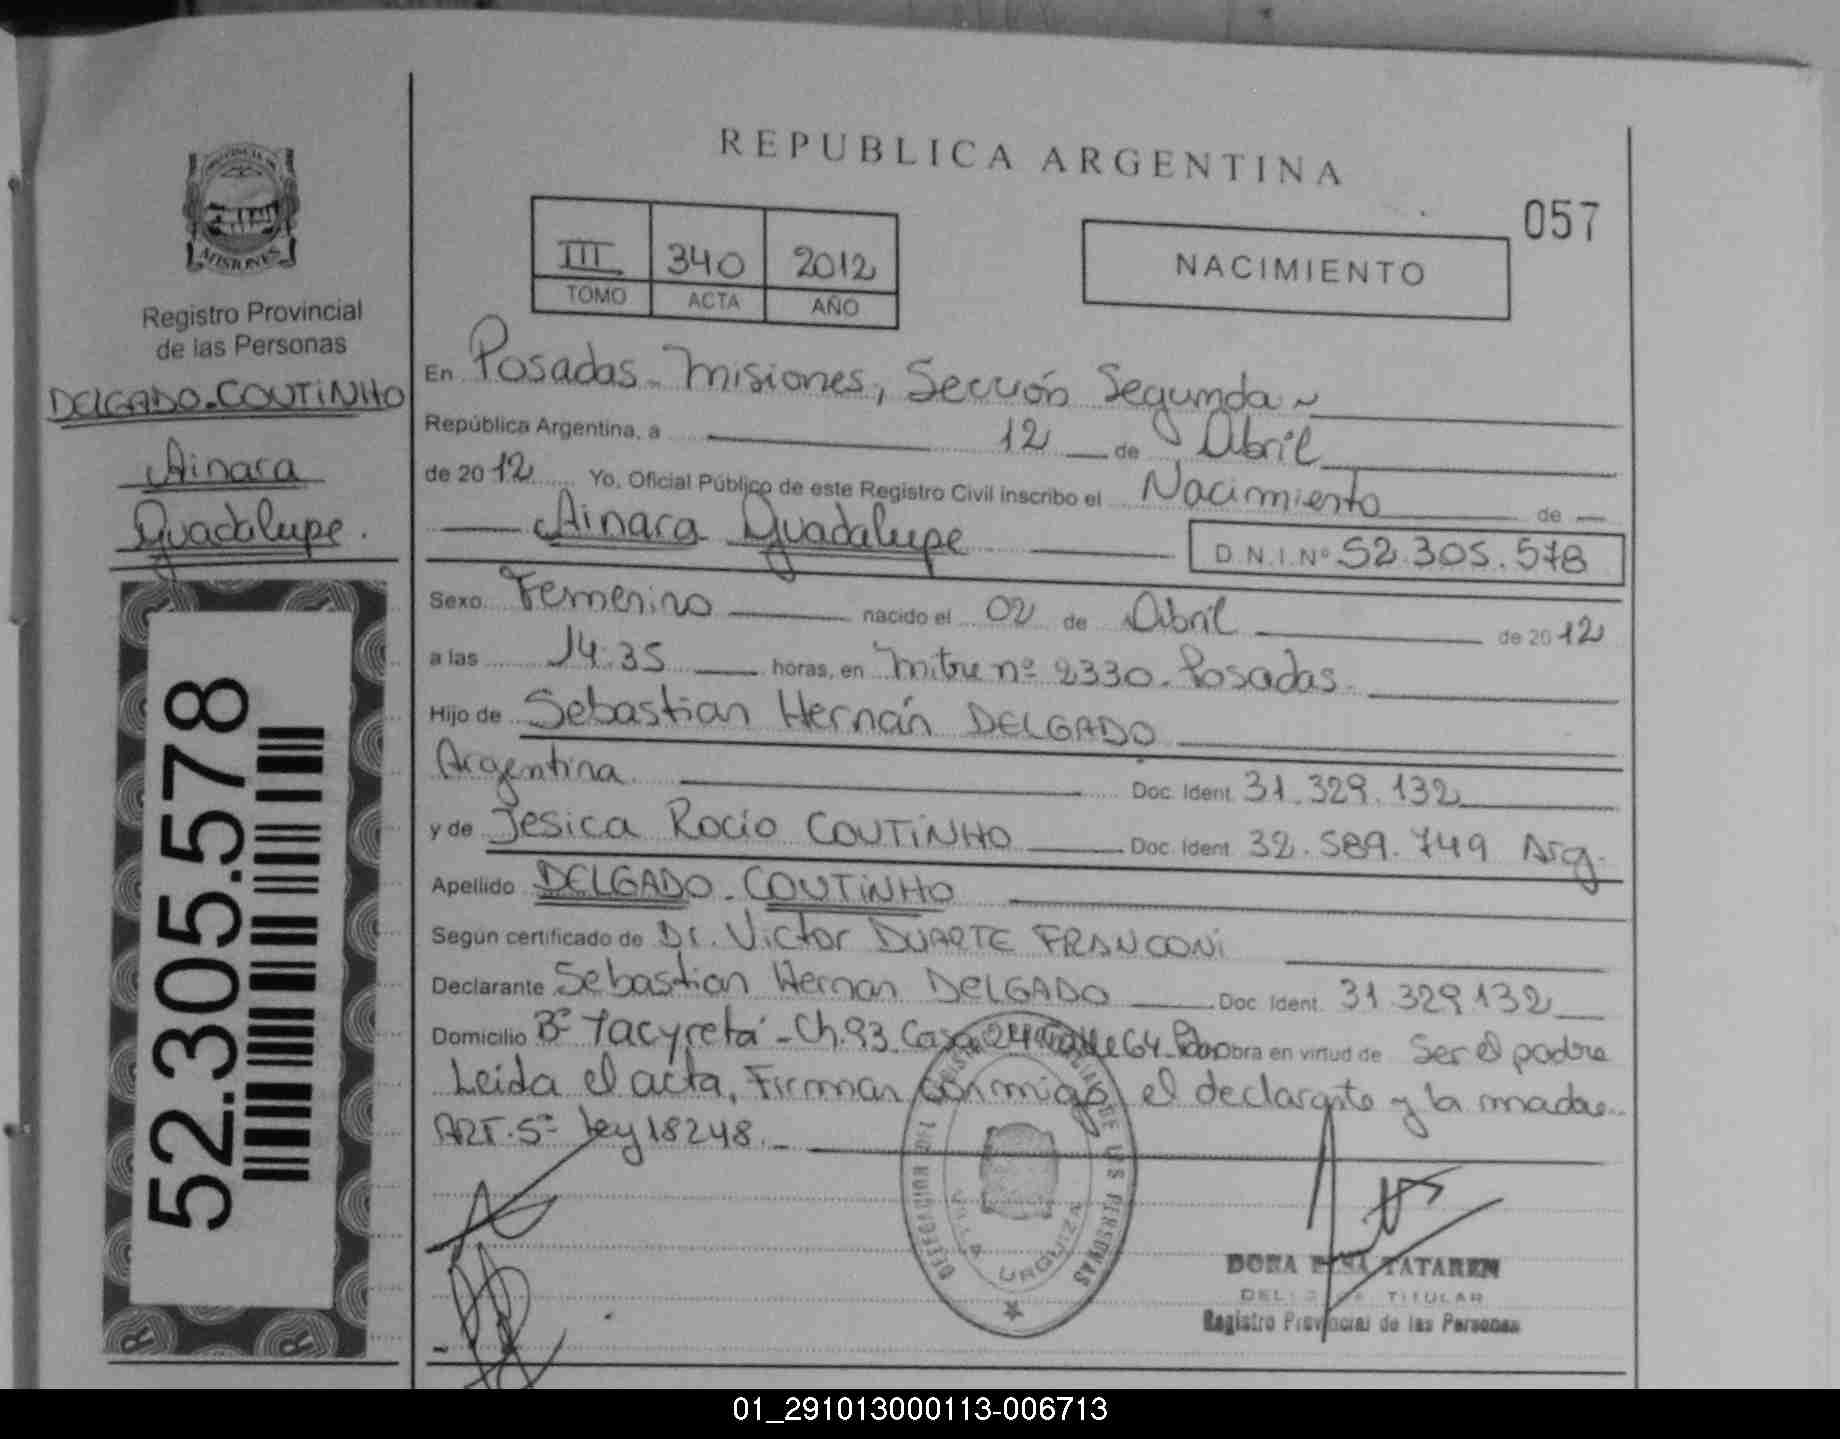 REPUBLICA ARGENTINA
057
III 340 2012
TOMO ACTA AÑO
NACIMIENTO
MISIONES
Registro Provincial
de las Personas
DELGADO-COUTiNHO
Ainara
Guadalupe.
52.305.578
En Posadas-Misiones, Sección Segunda
República Argentina, a 12 de Abril
de 2012 Yo, Oficial Público de este Registro Civil inscribo el Nacimiento de
Ainara Guadalupe D.N.I.Nº 52.305.578
Sexo Femenino nacido el 02 de Abril de 2012
a las 14:35 horas, en Mitre nº 2330-Posadas-
Hijo de Sebastian Hernán DELGADO
Argentina Doc. Ident. 31.329.132
y de Jesica Rocío COUTiNHO Doc. Ident. 32.589.749 Arg.
Apellido DELGADO-COUTiNHO
Según certificado de Dr. Victor DUARTE FRANCONi
Declarante Sebastian Hernan DELGADO Doc. Ident. 31.329.132
Domicilio Bº Yacyretá - Ch.93 Casa 24 Calle 64 Obra en virtud de Ser el padre
Leida el acta, Firman conmigo el declarante y la madre
ART. 5º Ley 18248.
DE LAS PERSONAS
VILLA URQUIZA
DORA TATAREN
TITULAR
Registro Provincial de las Personas
01_291013000113-006713